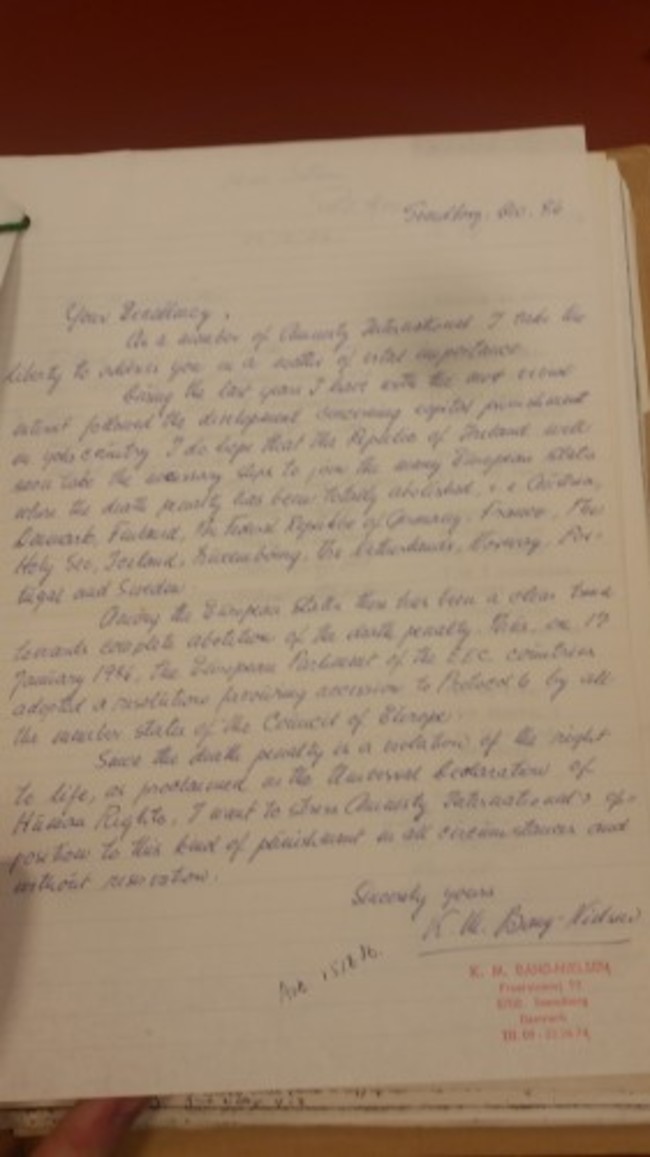 Svendborg. Dec. 86
Your Excellency,
As a member of Amnesty International I take the
liberty to address you in a matter of vital importance.
During the last years I have with the most
interest followed the development concerning capital punishment
in your country. I do hope that the Republic of Ireland will
soon take the necessary steps to join the many European states
where the death penalty has been totally abolished, i.e. Austria,
Denmark, Finland, the Federal Republic of Germany, France, The
Holy See, Iceland, Luxembourg, the Netherlands, Norway, Por-
tugal and Sweden.
Among the European states there has been a clear trend
towards complete abolition of the death penalty. Thus, on 17
January 1986, the European Parliament of the E.E.C. countries
adopted a resolution favouring accession to Protocol 6 by all
the member states of the Council of Europe.
Since the death penalty is a violation of the right
to life, as proclaimed in the Universal Declaration of
Human Rights, I want to stress Amnesty International's op-
position to this kind of punishment in all circumstances and
without reservation.
Sincerely yours
K. M. Bang-Nielsen
K. M. BANG-NIELSEN
5700 Svendborg
Denmark